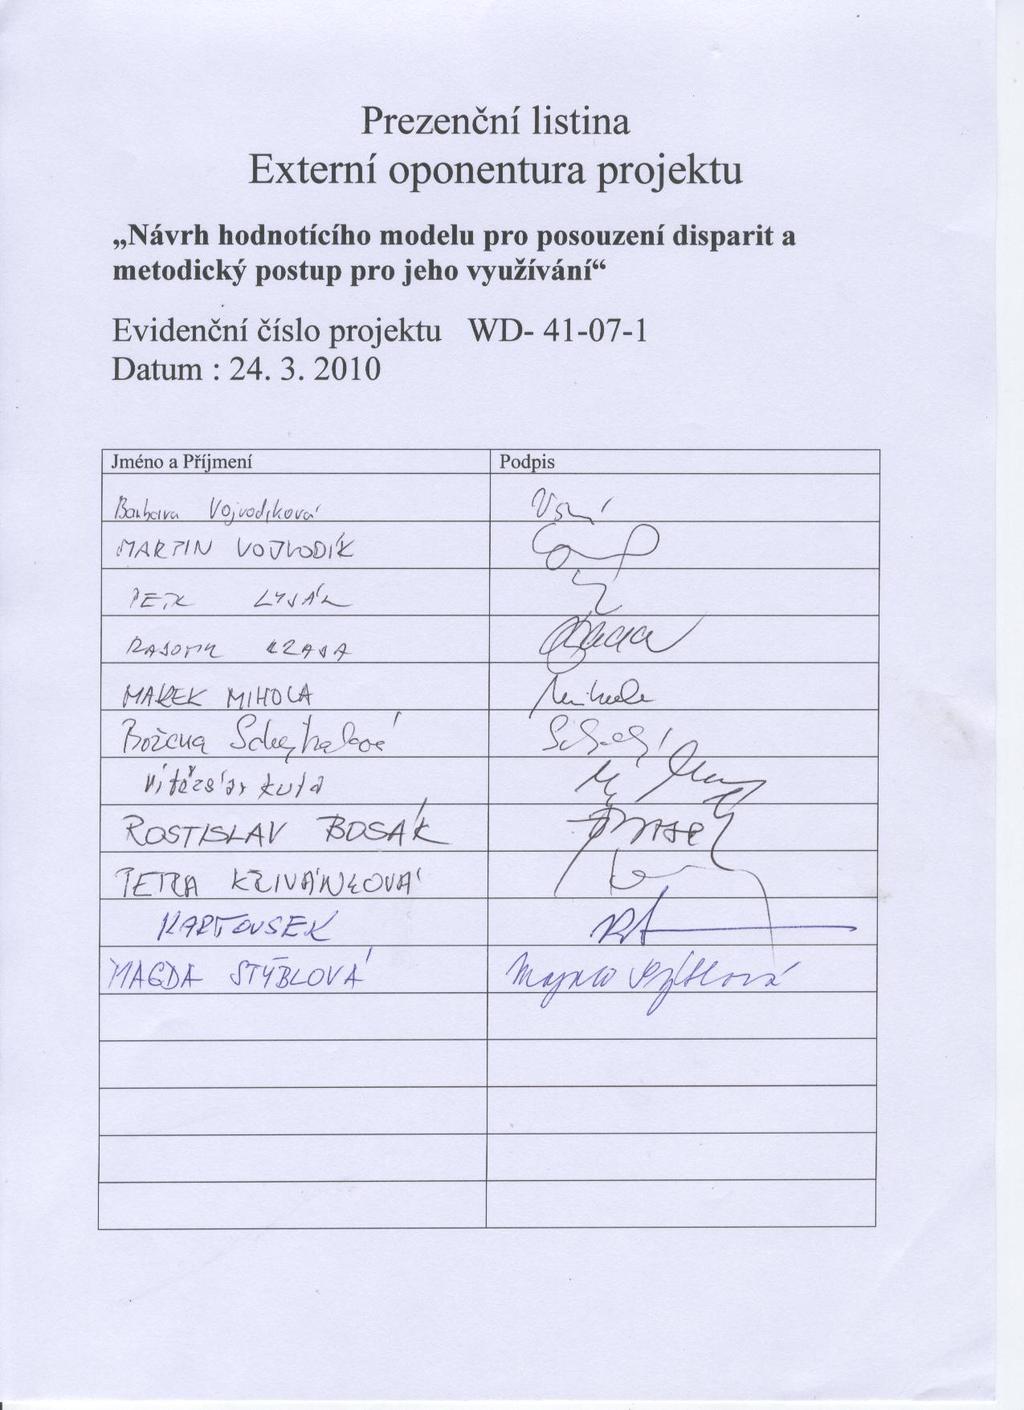 Prezenční listina
Externí oponentura projektu
„Návrh hodnotícího modelu pro posouzení disparit a
metodický postup pro jeho využívání“
Evidenční číslo projektu WD- 41-07-1
Datum : 24. 3. 2010
Jméno a Příjmení Podpis
Barbara Vojvodíková
MARTIN VOJVODÍK
PETR LYSÁK
RADOMIR
MAREK MIHOLA
Božena Schejbalová
Vítězslav Kuta
ROSTISLAV BOSÁK
PETRA KŘIVÁNKOVÁ
KARTOUSEK
MAGDA STÝBLOVÁ Magda Stýblová